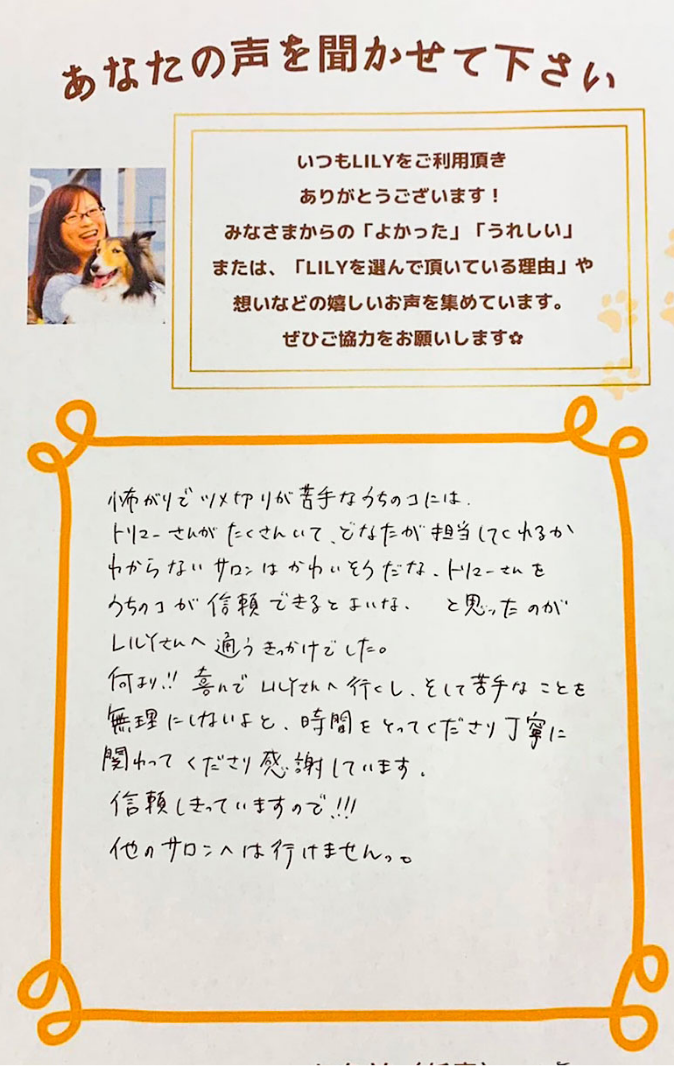 あなたの声を聞かせて下さい
いつもLILYをご利用頂き
ありがとうございます！
みなさまからの「よかった」「うれしい」
または、「LILYを選んで頂いている理由」や
想いなどの嬉しいお声を集めています。
ぜひご協力をお願いします✿
怖がりでツメ切りが苦手なうちのコには、
トリマーさんがたくさんいて、どなたが担当してくれるか
わからないサロンはかわいそうだな、トリマーさんを
うちのコが信頼できるとよいな、 と思ったのが
LILYさんへ通うきっかけでした。
何より!! 喜んでLILYさんへ行くし、そして苦手なことを
無理にしないよと、時間をとってくださり丁寧に
関わってくださり感謝しています。
信頼しきっていますので!!!
他のサロンへは行けませんっ。